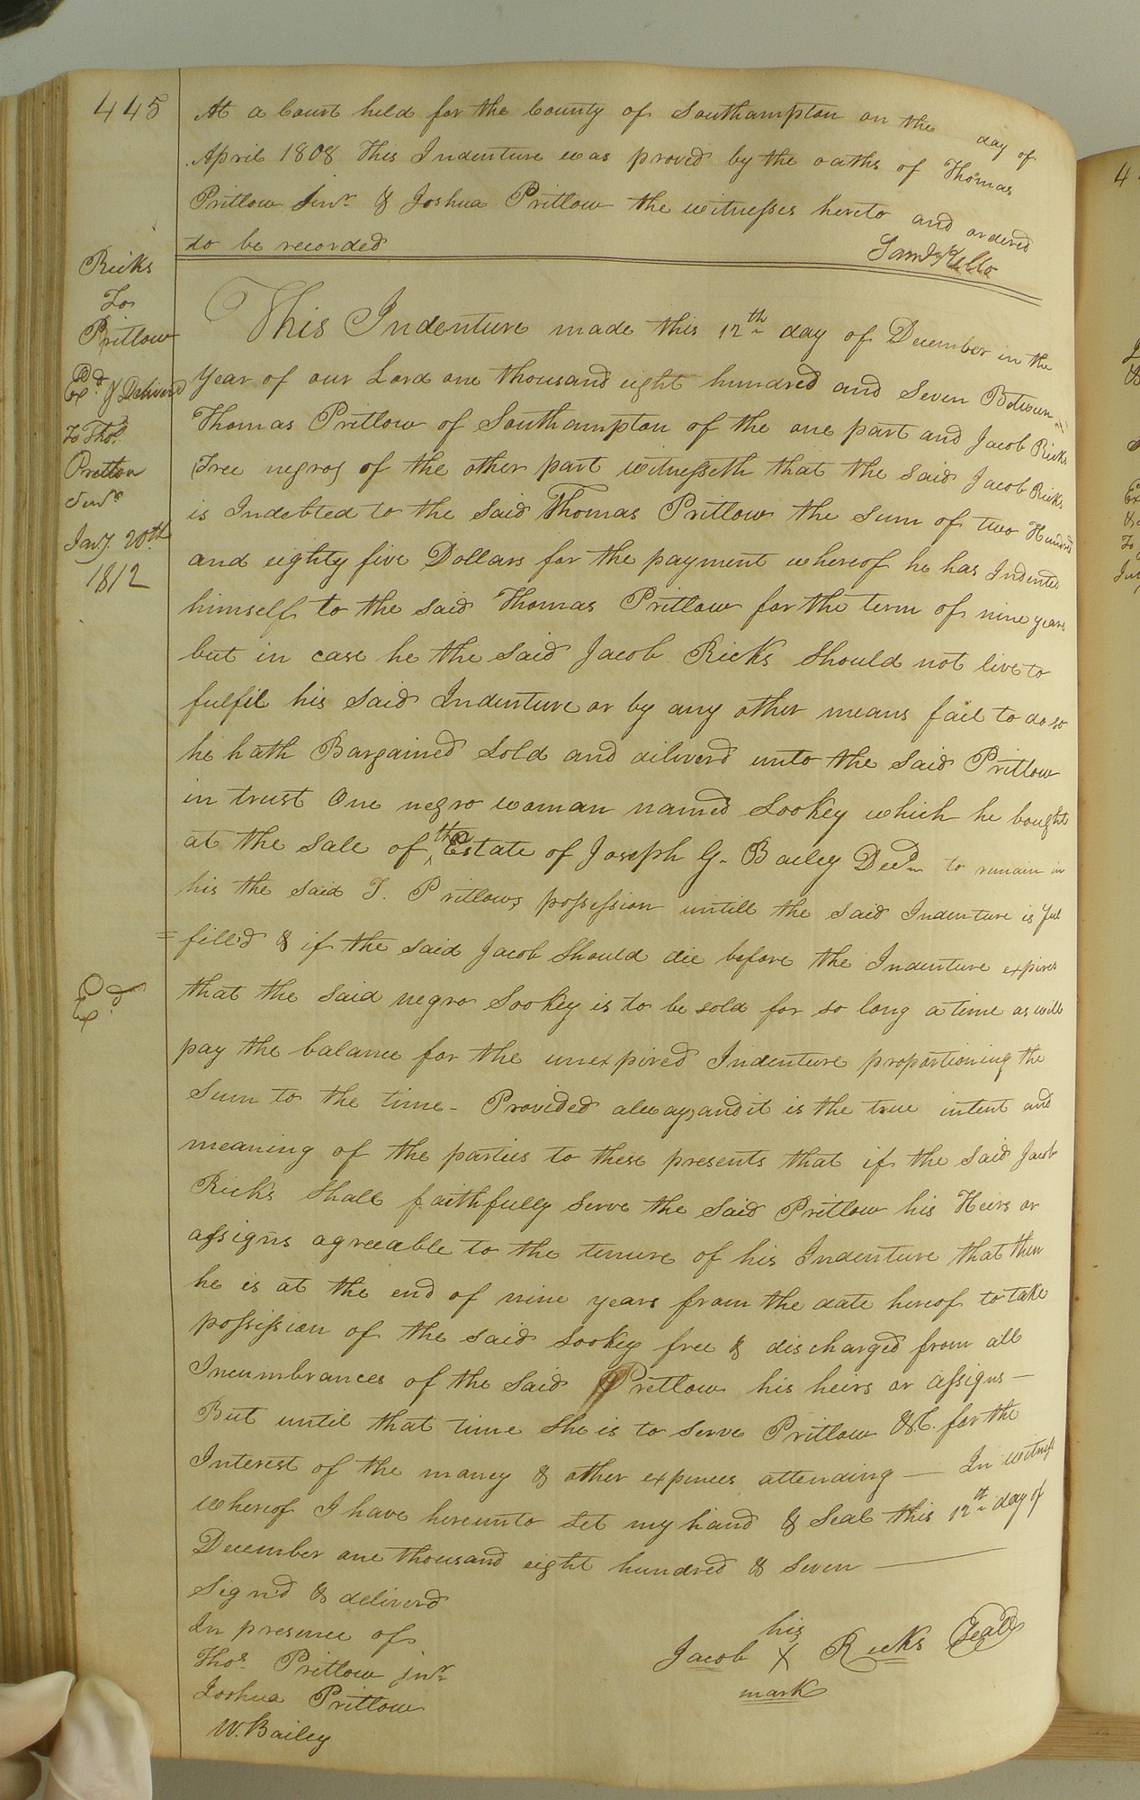 445
At a Court held for the County of Southampton on the day of
April 1808 This Indenture was proved by the oaths of Thomas
Pritlow Junr & Joshua Pritlow the witnesses hereto and ordered
to be recorded
Saml Kello
Ricks
To
Pritlow
Exd & Deliverd
To Thos
Pretlow
Junr
Jany. 20th
1812
This Indenture made this 12th day of December in the
Year of our Lord one thousand eight hundred and Seven Between
Thomas Pritlow of Southampton of the one part and Jacob Ricks
Free negroe of the other part witnesseth that the said Jacob Ricks
is Indebted to the said Thomas Pritlow the Sum of two Hundred
and eighty five Dollars for the payment whereof he has Indented
himself to the said Thomas Pritlow for the term of nine years
but in case he the said Jacob Ricks should not live to
fulfil his said Indenture or by any other means fail to do so
he hath Bargained Sold and deliverd unto the said Pritlow
in trust One negro woman named Sookey which he bought
at the sale of the Estate of Joseph G. Bailey Decd to remain in
his the said T. Pritlows possession untill the said Indenture is ful
=filld & if the said Jacob should die before the Indenture expires
Exd
that the said negro Sookey is to be sold for so long a time as will
pay the balance for the unexpired Indenture proportioning the
Sum to the time - Provided always and it is the true intent and
meaning of the parties to these presents that if the said Jacob
Ricks shall faithfully serve the said Pritlow his Heirs or
assigns agreeable to the tenure of his Indenture that then
he is at the end of nine years from the date hereof to take
possission of the said Sookey free & discharged from all
Incumbrances of the said Pretlow his heirs or assigns —
But until that time she is to serve Pritlow &C. for the
Interest of the money & other expences attending — In witness
whereof I have hereunto set my hand & Seal this 12th day of
December one thousand eight hundred & seven —
Sign'd & deliverd
In presence of
Thos. Pritlow junr
Joshua Pritlow
W. Bailey
his
Jacob X Ricks Seal
mark